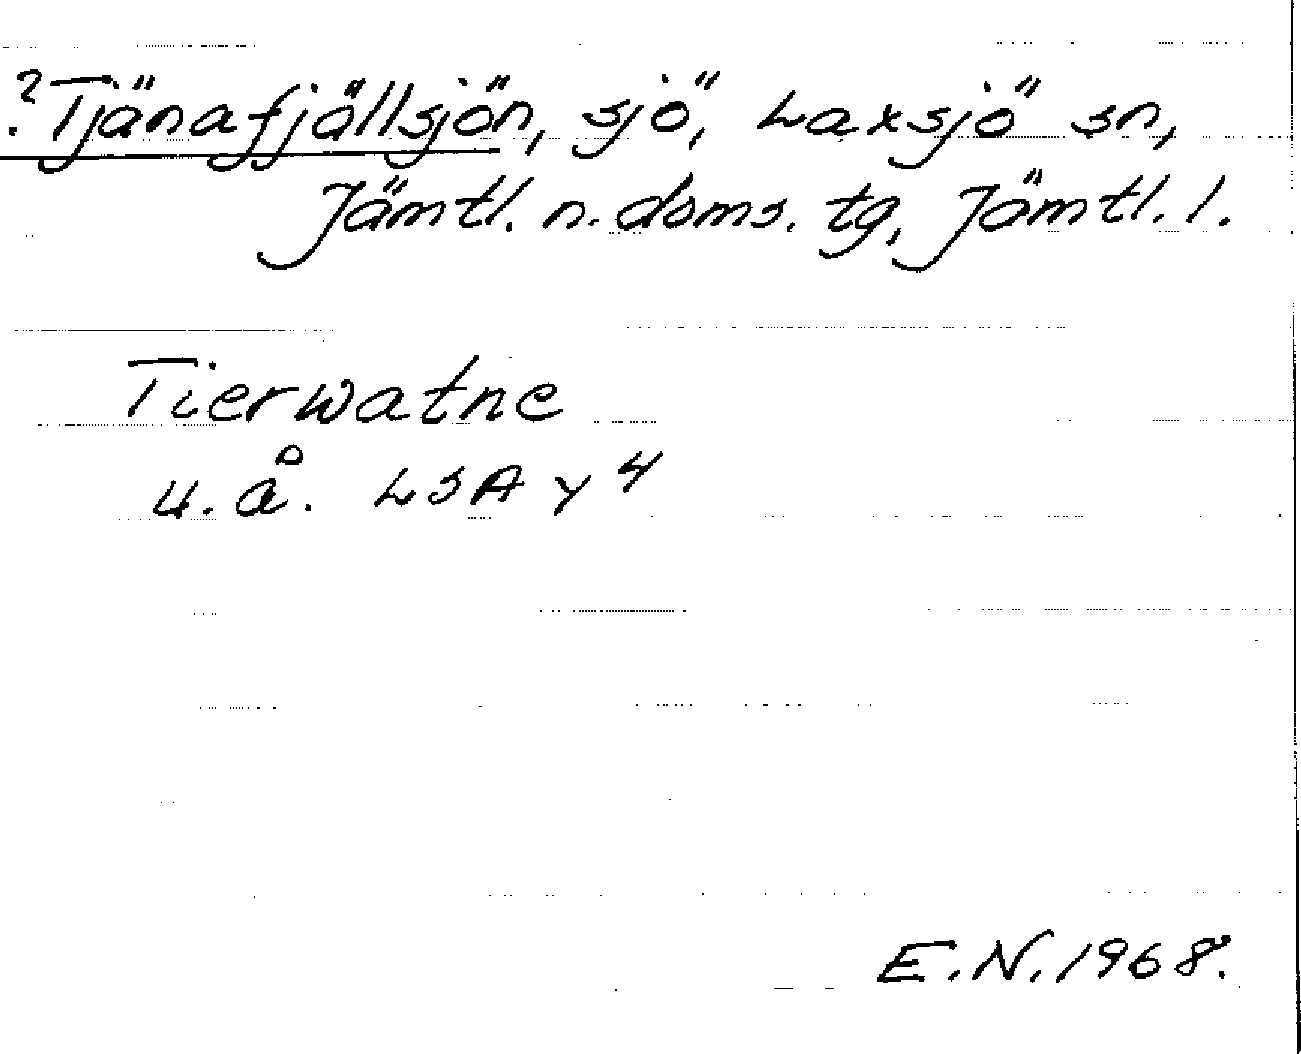 ?Tjänafjällsjön, sjö, Laxsjö sn,
Jämtl. n. doms. tg, Jämtl. l.
Tierwatne
u. å. LSA Y 4
E.N. 1968.